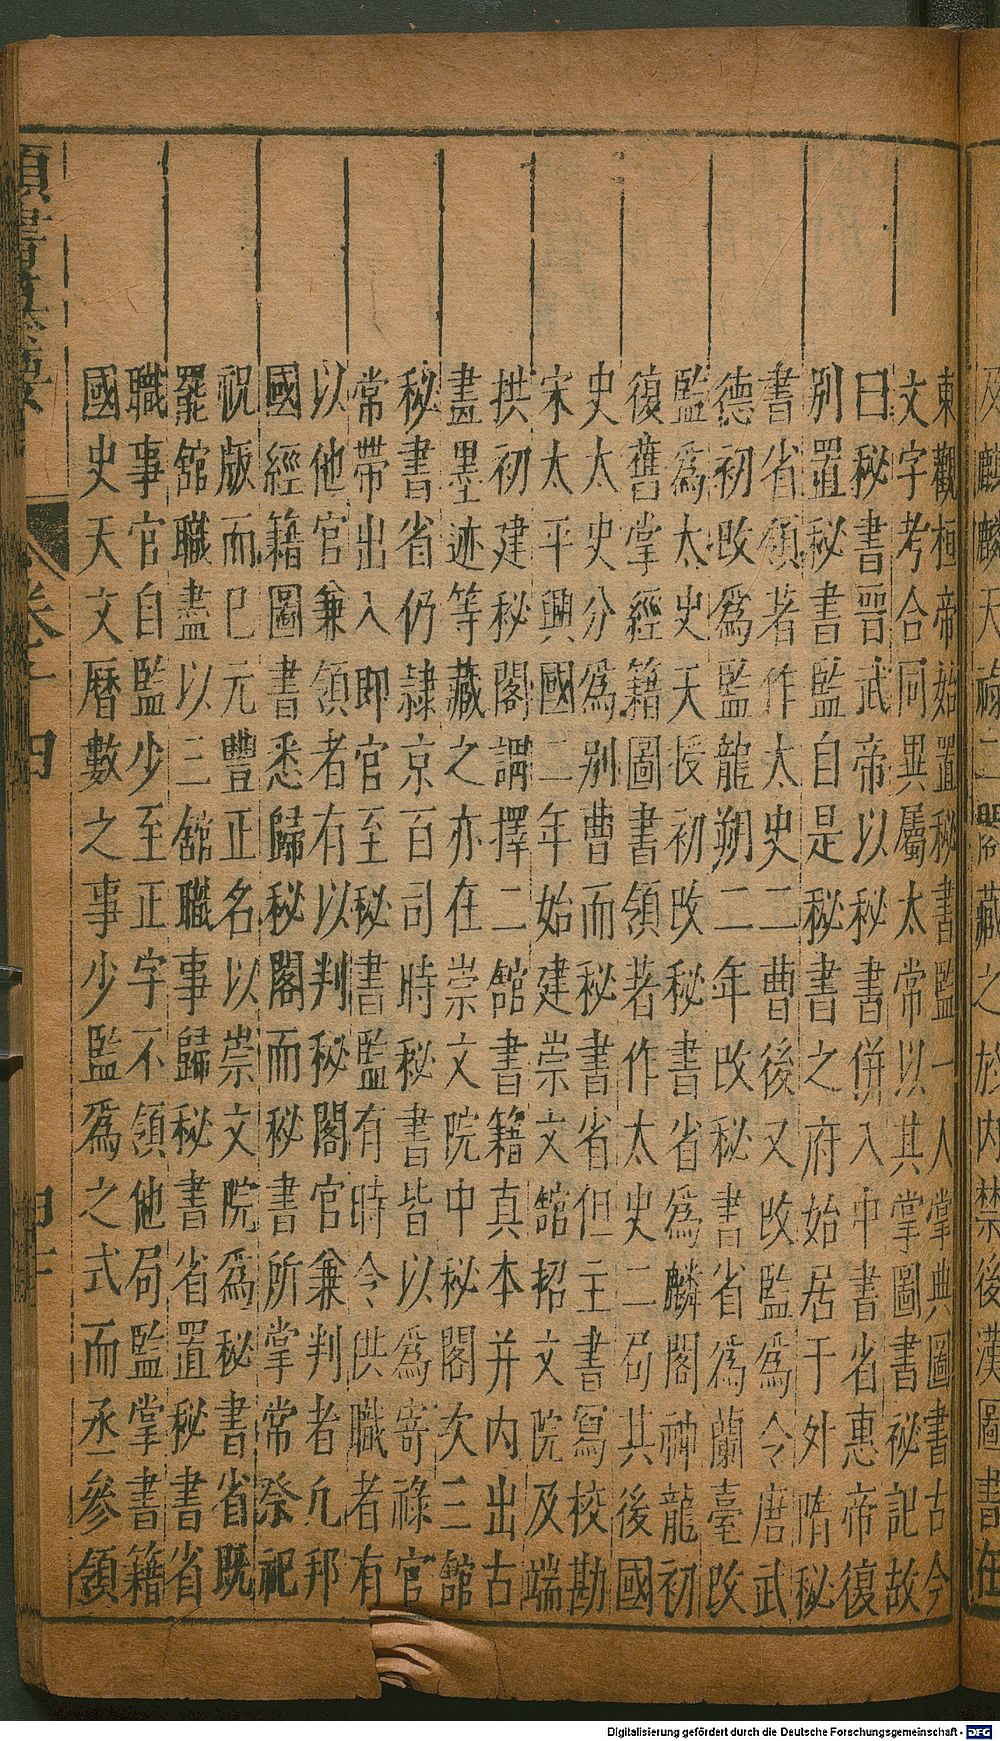 及麒麟天祿二閣藏之於內禁後漢圖書在
東觀桓帝始置秘書監一人掌典圖書古今
文字考合同異屬太常以其掌圖書祕記故
曰秘書晉武帝以秘書併入中書省惠帝復
別置秘書監自是秘書之府始居于外隋秘
書省領著作太史二曹後又改監爲令唐武
德初改爲監龍朔二年改秘書省爲蘭臺改
監爲太史天授初改秘書省爲麟閣神龍初
復舊掌經籍圖書領著作太史二局其後國
史太史分爲別曹而秘書省但主書寫校勘
宋太平興國二年始建崇文館招文院及端
拱初建秘閣謂擇二館書籍真本并內出古
畫墨迹等藏之亦在崇文院中秘閣次三館
秘書省仍隷京百司時秘書皆以爲寄祿官
常帶出入即官至秘書監有時令供職者有
以他官兼領者有以判秘閣官兼判者凢邦
國經籍圖書悉歸秘閣而秘書所掌常祭祀
祝版而已元豐正名以崇文院爲秘書省既
罷館職盡以三館職事歸秘書省置秘書省
職事官自監少至正字不領他局監掌書籍
國史天文曆數之事少監爲之式而丞參領
類書纂要
卷十四
四十
Digitalisierung gefördert durch die Deutsche Forschungsgemeinschaft - DFG